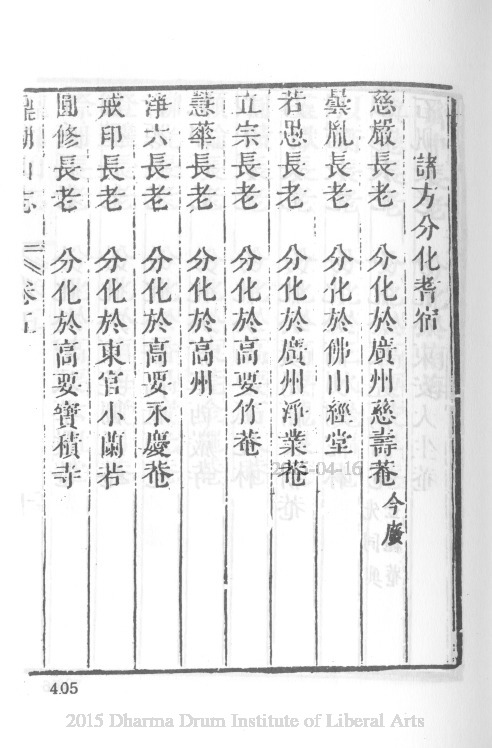 諸方分化耆宿
慈嚴長老 分化於廣州慈壽菴今廢
曇胤長老 分化於佛山經堂
若愚長老 分化於廣州淨業菴
立宗長老 分化於高要竹菴
慧華長老 分化於高州
淨六長老 分化於高要永慶菴
戒印長老 分化於東官小蘭若
圓修長老 分化於高要寶積寺
鼎湖山志 卷五
405
2015 Dharma Drum Institute of Liberal Arts